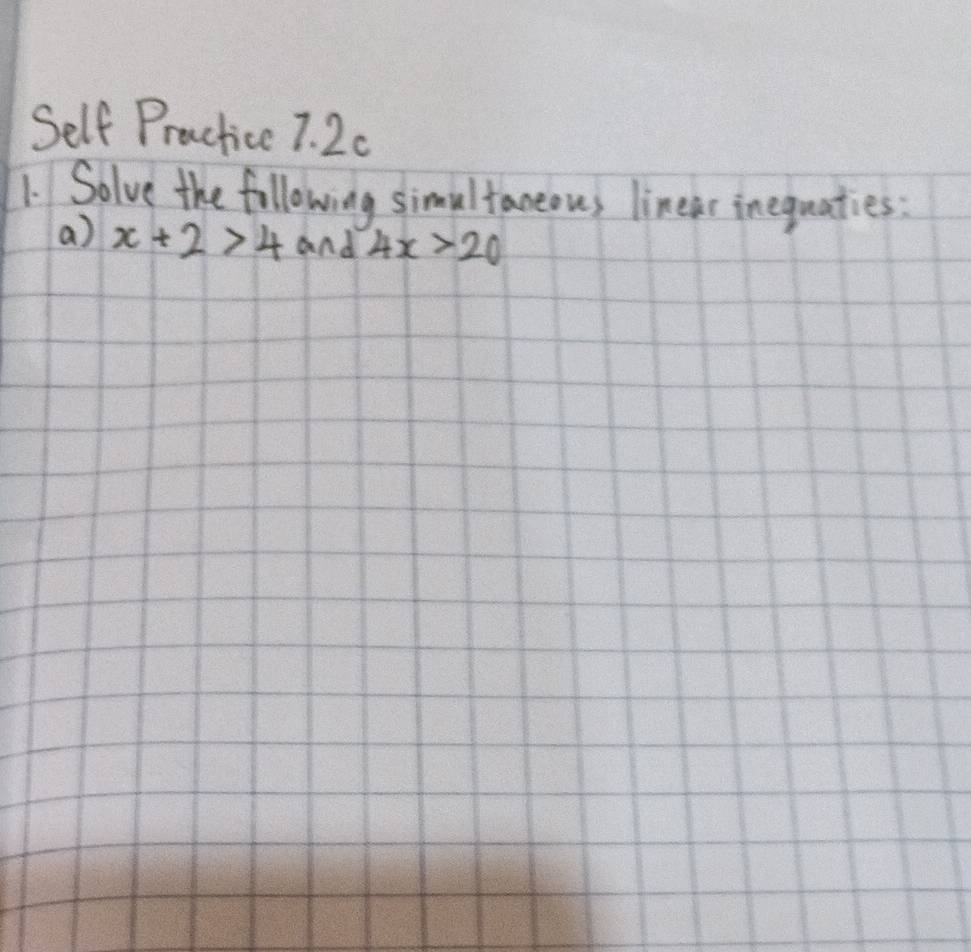 Self Practice 7.2c
1. Solve the following simultaneous linear inequaties:
a) x + 2 > 4 and 4x > 20